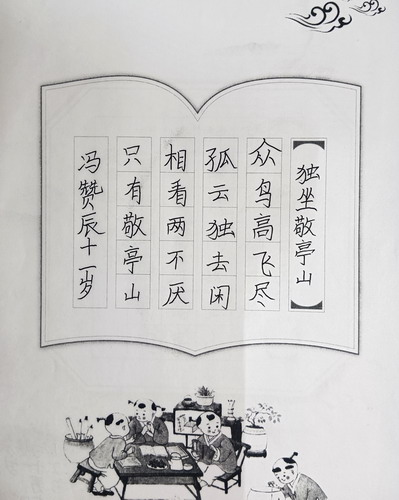 独坐敬亭山
众鸟高飞尽
孤云独去闲
相看两不厌
只有敬亭山
冯赞辰十一岁